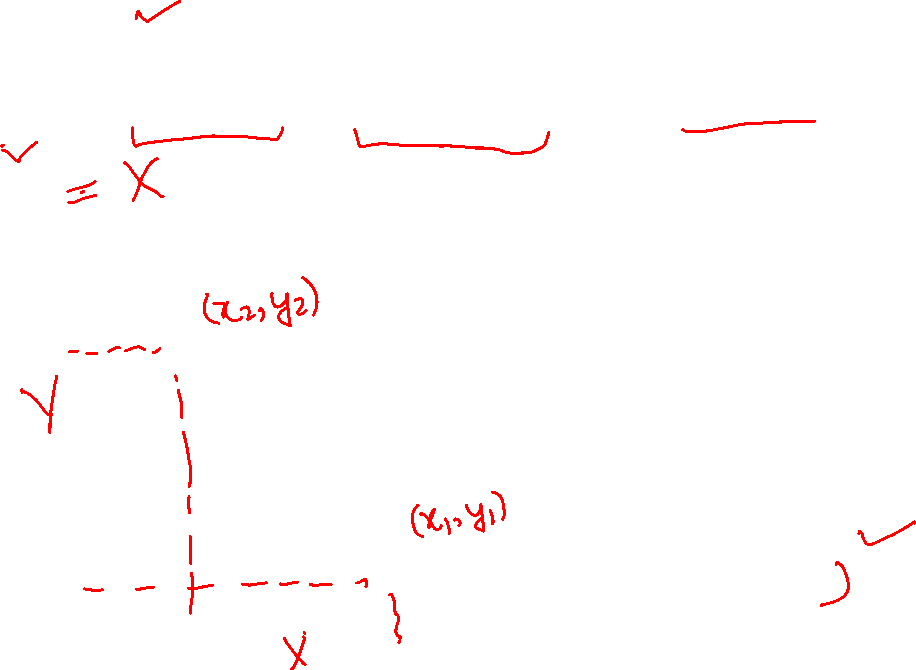 = X
(x₂, y₂)
Y
(x₁, y₁)
X